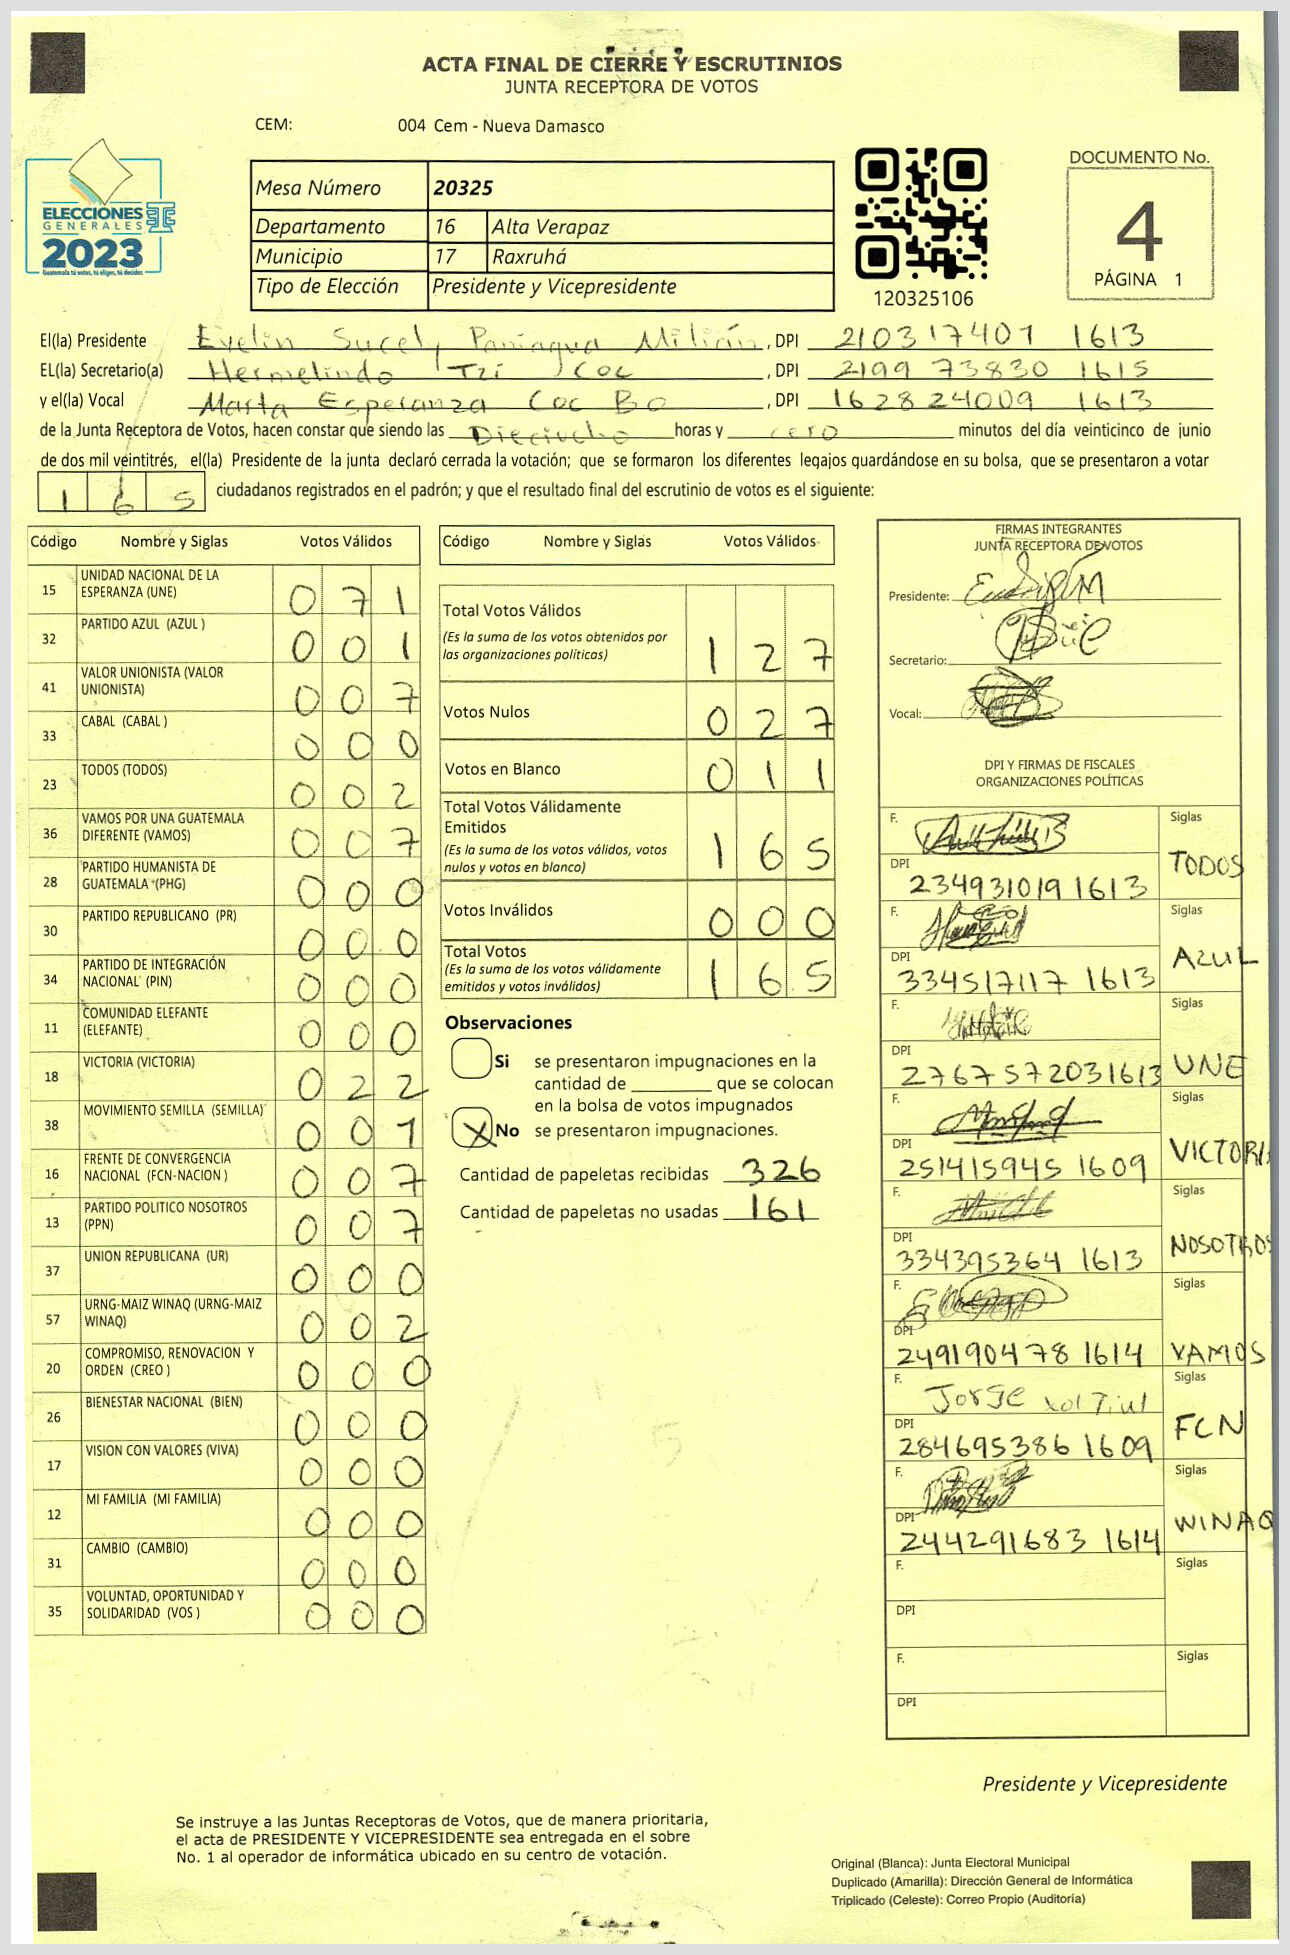 ACTA FINAL DE CIERRE Y ESCRUTINIOS
JUNTA RECEPTORA DE VOTOS
CEM: 004 Cem - Nueva Damasco
ELECCIONES
GENERALES
2023
Guatemala tú votas, tú eliges, tú decides
Mesa Número 20325
Departamento 16 Alta Verapaz
Municipio 17 Raxruhá
Tipo de Elección Presidente y Vicepresidente
120325106
DOCUMENTO No.
4
PÁGINA 1
El(la) Presidente Evelin Sucely Paniagua Milián, DPI 210317401 1613
EL(la) Secretario(a) Hermelindo Tzi Coc, DPI 2199 73830 1615
y el(la) Vocal Marta Esperanza Coc Bo, DPI 162824009 1613
de la Junta Receptora de Votos, hacen constar que siendo las Dieciocho horas y cero minutos del día veinticinco de junio
de dos mil veintitrés, el(la) Presidente de la junta declaró cerrada la votación; que se formaron los diferentes legajos guardándose en su bolsa, que se presentaron a votar
1 6 5 ciudadanos registrados en el padrón; y que el resultado final del escrutinio de votos es el siguiente:
Código Nombre y Siglas Votos Válidos
15 UNIDAD NACIONAL DE LA ESPERANZA (UNE) 0 7 1
32 PARTIDO AZUL (AZUL ) 0 0 1
41 VALOR UNIONISTA (VALOR UNIONISTA) 0 0 7
33 CABAL (CABAL ) 0 0 0
23 TODOS (TODOS) 0 0 2
36 VAMOS POR UNA GUATEMALA DIFERENTE (VAMOS) 0 0 7
28 PARTIDO HUMANISTA DE GUATEMALA (PHG) 0 0 0
30 PARTIDO REPUBLICANO (PR) 0 0 0
34 PARTIDO DE INTEGRACIÓN NACIONAL (PIN) 0 0 0
11 COMUNIDAD ELEFANTE (ELEFANTE) 0 0 0
18 VICTORIA (VICTORIA) 0 2 2
38 MOVIMIENTO SEMILLA (SEMILLA) 0 0 1
16 FRENTE DE CONVERGENCIA NACIONAL (FCN-NACION ) 0 0 7
13 PARTIDO POLITICO NOSOTROS (PPN) 0 0 7
37 UNION REPUBLICANA (UR) 0 0 0
57 URNG-MAIZ WINAQ (URNG-MAIZ WINAQ) 0 0 2
20 COMPROMISO, RENOVACION Y ORDEN (CREO ) 0 0 0
26 BIENESTAR NACIONAL (BIEN) 0 0 0
17 VISION CON VALORES (VIVA) 0 0 0
12 MI FAMILIA (MI FAMILIA) 0 0 0
31 CAMBIO (CAMBIO) 0 0 0
35 VOLUNTAD, OPORTUNIDAD Y SOLIDARIDAD (VOS ) 0 0 0
Código Nombre y Siglas Votos Válidos
Total Votos Válidos
(Es la suma de los votos obtenidos por
las organizaciones políticas) 1 2 7
Votos Nulos 0 2 7
Votos en Blanco 0 1 1
Total Votos Válidamente
Emitidos
(Es la suma de los votos válidos, votos
nulos y votos en blanco) 1 6 5
Votos Inválidos 0 0 0
Total Votos
(Es la suma de los votos válidamente
emitidos y votos inválidos) 1 6 5
Observaciones
Si se presentaron impugnaciones en la
cantidad de ________ que se colocan
en la bolsa de votos impugnados
X No se presentaron impugnaciones.
Cantidad de papeletas recibidas 326
Cantidad de papeletas no usadas 161
FIRMAS INTEGRANTES
JUNTA RECEPTORA DE VOTOS
Presidente:
Secretario:
Vocal:
DPI Y FIRMAS DE FISCALES
ORGANIZACIONES POLÍTICAS
F. Siglas
DPI 234931019 1613 TODOS
F. Siglas
DPI 334517117 1613 AZUL
F. Siglas
DPI 2767572031613 UNE
F. Siglas
DPI 251415945 1609 VICTORIA
F. Siglas
DPI 334395364 1613 NOSOTROS
F. Siglas
DPI 249190478 1614 VAMOS
F. Jorge Xol Tiul Siglas
DPI 284695386 1609 FCN
F. Siglas
DPI 244291683 1614 WINAQ
F. Siglas
DPI
F. Siglas
DPI
Presidente y Vicepresidente
Se instruye a las Juntas Receptoras de Votos, que de manera prioritaria,
el acta de PRESIDENTE Y VICEPRESIDENTE sea entregada en el sobre
No. 1 al operador de informática ubicado en su centro de votación.
Original (Blanca): Junta Electoral Municipal
Duplicado (Amarilla): Dirección General de Informática
Triplicado (Celeste): Correo Propio (Auditoría)